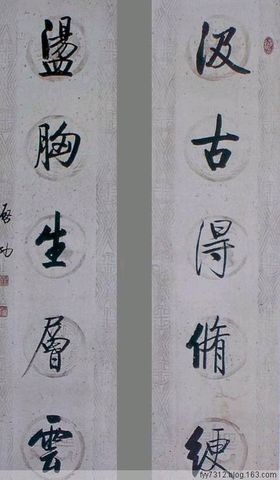 汲古得脩綆
盪胸生層雲
启功
fyy7312.blog.163.com